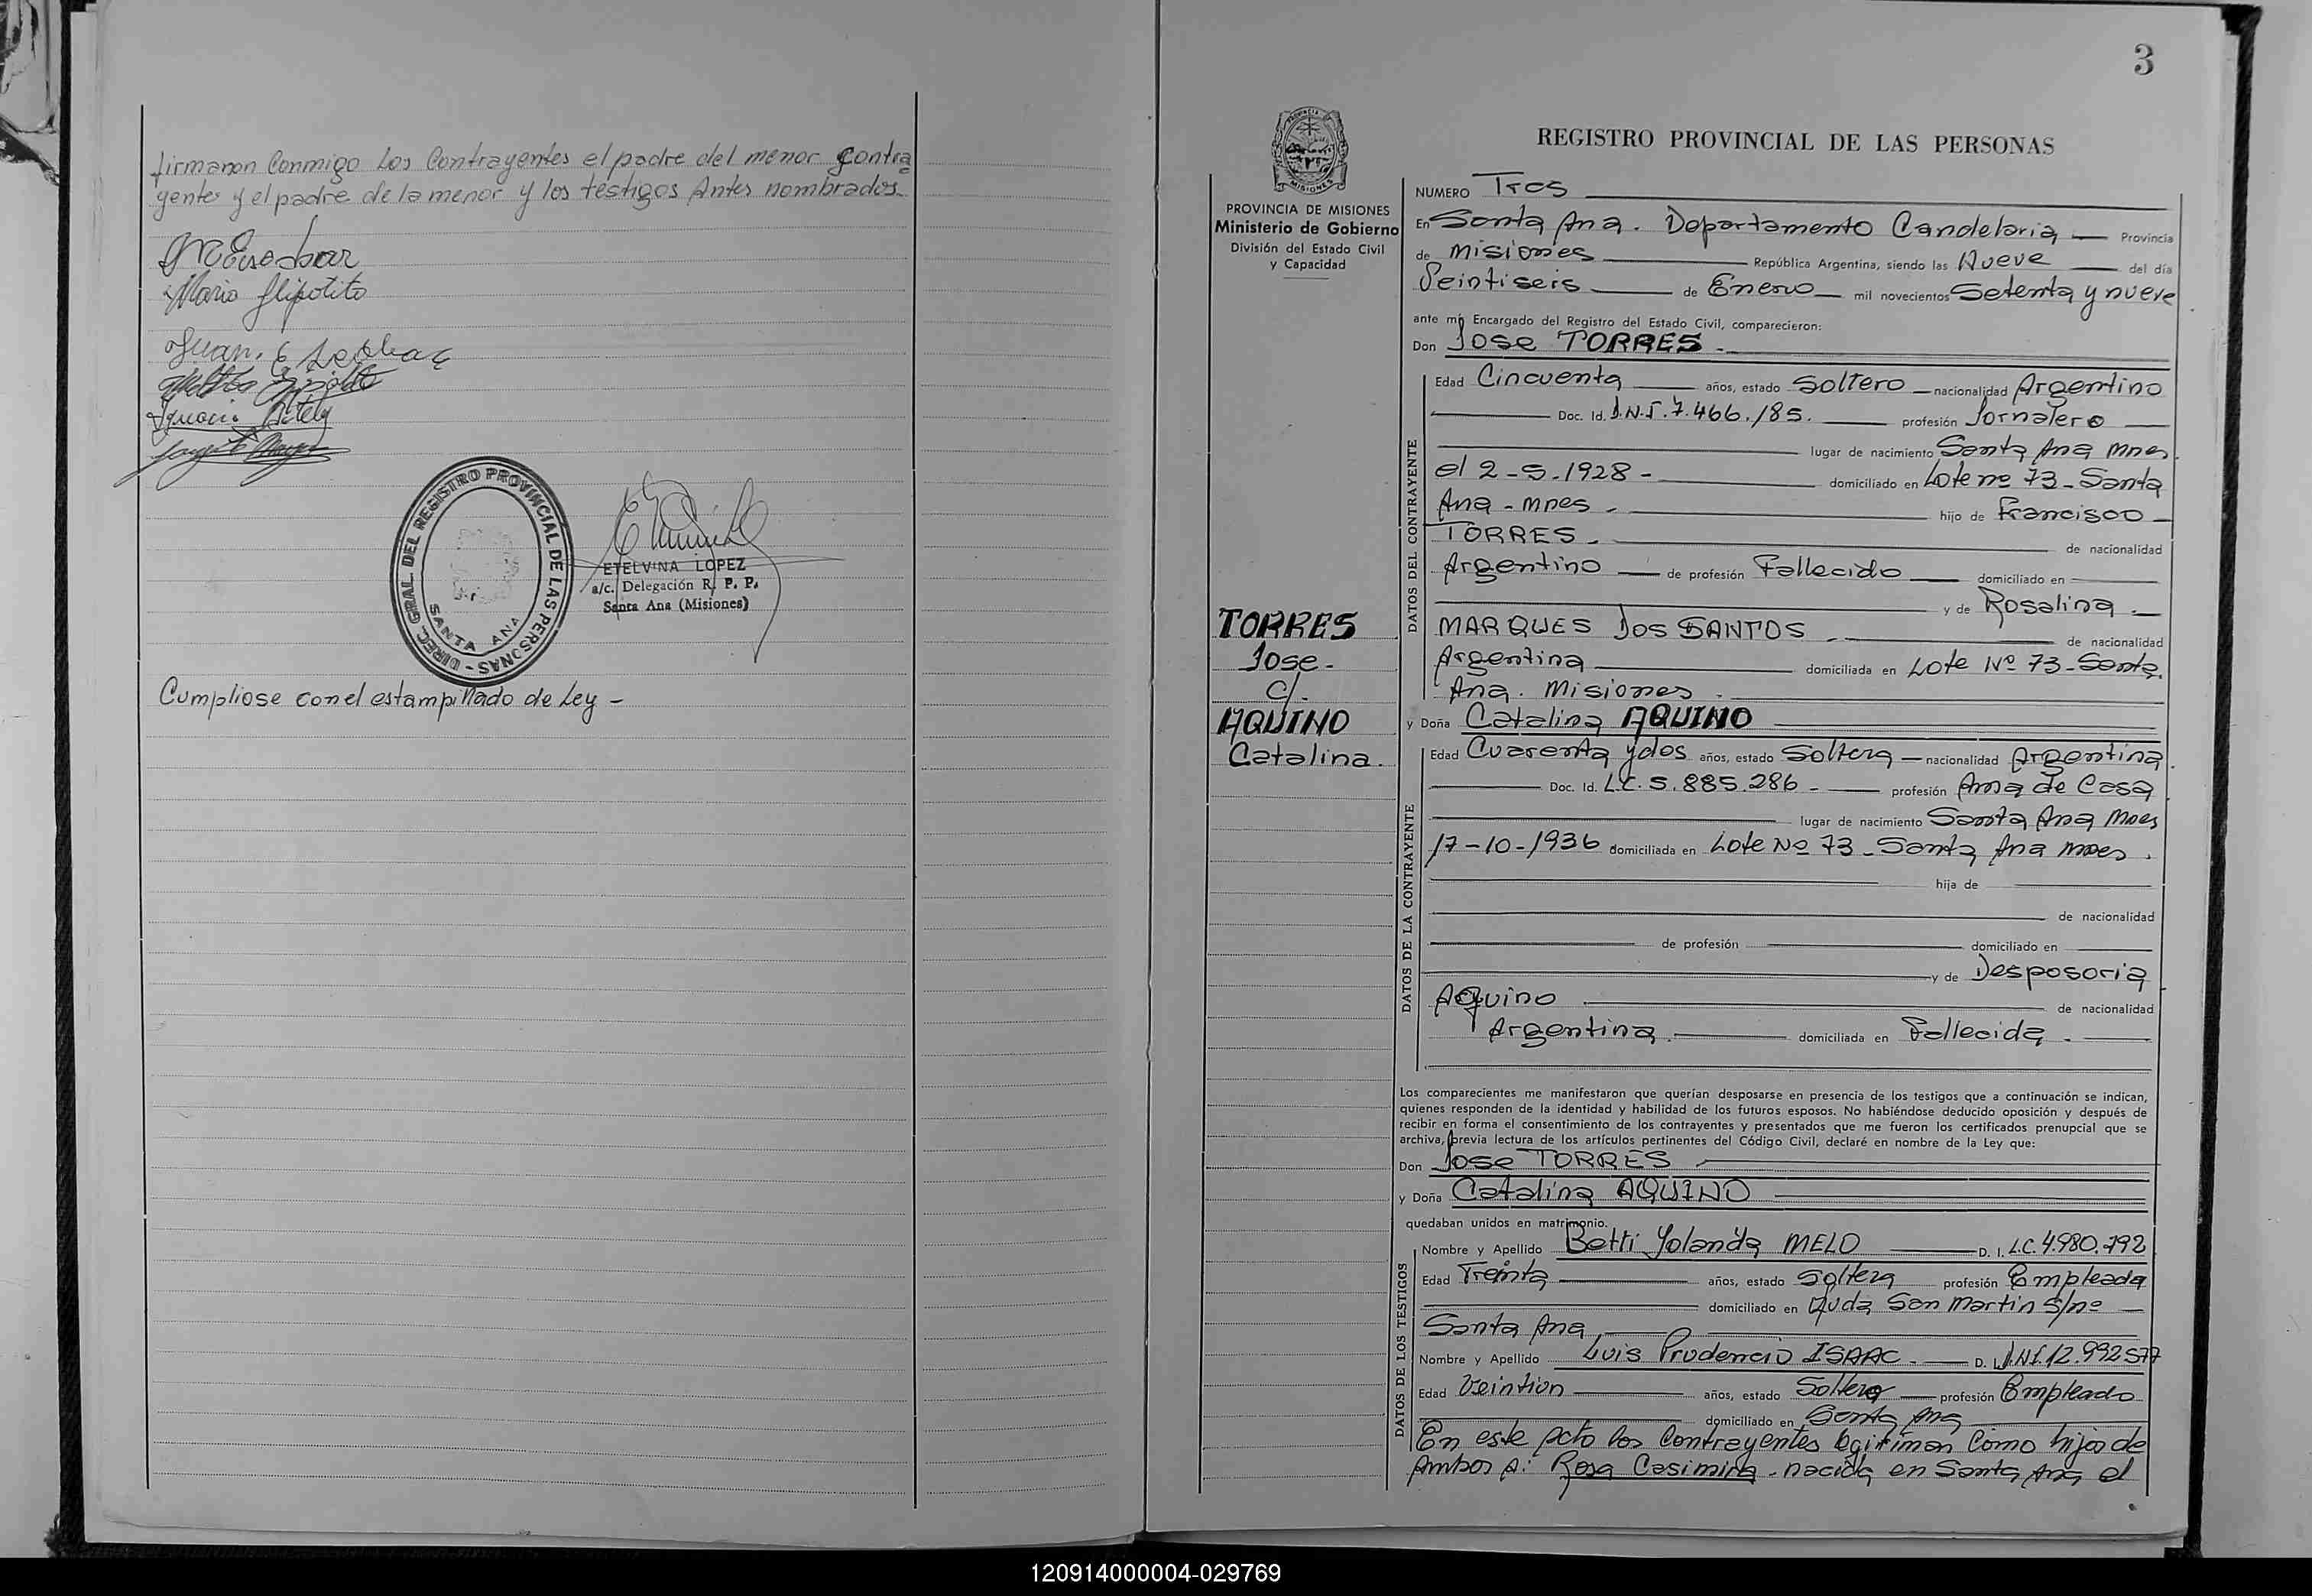 firmaron Conmigo los Contrayentes el padre del menor Contra
yente y el padre de la menor y los testigos Antes nombrados
Mario Hipolito
Juan
DIREC. GRAL. DEL REGISTRO PROVINCIAL DE LAS PERSONAS -
SANTA ANA
ETELVINA LOPEZ
a/c. Delegación R. P. P.
Santa Ana (Misiones)
Cumpliose con el estampillado de Ley -
3
REGISTRO PROVINCIAL DE LAS PERSONAS
PROVINCIA DE MISIONES
Ministerio de Gobierno
División del Estado Civil
y Capacidad
TORRES
Jose -
c/.
AQUINO
Catalina.
NUMERO Tres
En Santa Ana. Departamento Candelaria — Provincia
de Misiones República Argentina, siendo las Nueve del día
Veintiseis de Enero mil novecientos Setenta y nueve
ante mí, Encargado del Registro del Estado Civil, comparecieron:
Don Jose TORRES.
DATOS DEL CONTRAYENTE
Edad Cincuenta años, estado Soltero nacionalidad Argentino
Doc. Id. D.N.I. 7.466.185. profesión Jornalero
lugar de nacimiento Santa Ana Mnes.
el 2-5-1928 - domiciliado en Lote nº 73 - Santa
Ana - Mnes. hijo de Francisco
TORRES. de nacionalidad
Argentino de profesión Fallecido domiciliado en
y de Rosalina.
MARQUES DOS SANTOS. de nacionalidad
Argentina domiciliada en Lote Nº 73 - Santa
Ana. Misiones.
y Doña Catalina AQUINO
DATOS DE LA CONTRAYENTE
Edad Cuarenta y dos años, estado Soltera nacionalidad Argentina.
Doc. Id. L.C. 5.885.286 - profesión Ama de Casa
lugar de nacimiento Santa Ana Mnes
17-10-1936 domiciliada en Lote Nº 73 - Santa Ana Mnes.
hija de
de nacionalidad
de profesión domiciliado en
y de Desposoria
Aquino de nacionalidad
Argentina. domiciliada en Fallecida.
Los comparecientes me manifestaron que querían desposarse en presencia de los testigos que a continuación se indican,
quienes responden de la identidad y habilidad de los futuros esposos. No habiéndose deducido oposición y después de
recibir en forma el consentimiento de los contrayentes y presentados que me fueron los certificados prenupcial que se
archiva, previa lectura de los artículos pertinentes del Código Civil, declaré en nombre de la Ley que:
Don Jose TORRES
y Doña Catalina AQUINO
quedaban unidos en matrimonio.
DATOS DE LOS TESTIGOS
Nombre y Apellido Betti Yolanda MELO D. I. L.C. 4.980.792
Edad Treinta años, estado Soltera profesión Empleada
domiciliado en Avda San Martin S/nº
Santa Ana
Nombre y Apellido Luis Prudencio ISAAC. D. I. D.N.I. 12.992.577
Edad Veintiun años, estado Soltero profesión Empleado
domiciliado en Santa Ana
En este acto los Contrayentes legitiman Como hijos de
Ambos a: Rosa Casimira - nacida en Santa Ana el
120914000004-029769